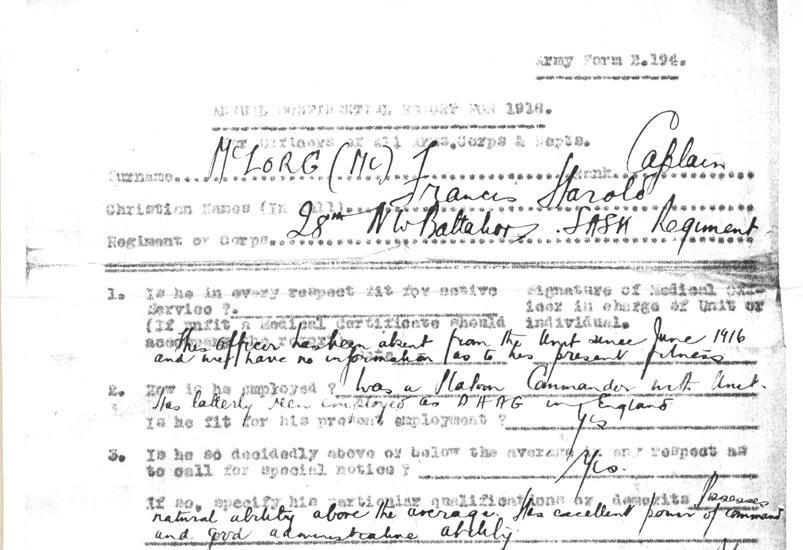 Army Form B.194.
ANNUAL CONFIDENTIAL REPORT FOR 1918.
For Officers of all Arms, Corps & Depts.
Surname.. McLORG (MC) F Rank. Captain
Christian Names (In full).. Francis Harold
Regiment or Corps.. 28th NW Battalion. SASK Regiment
1. Is he in every respect fit for active Signature of Medical Off-
Service ?. icer in charge of Unit or
(If unfit a Medical Certificate should individual.
This officer has been absent from the Unit since June 1916
and we have no information as to his present fitness
2. How is he employed ? Was a Platoon Commander with Unit.
Has latterly been employed as DAAG in England
Is he fit for his present employment ? Yes
3. Is he so decidedly above or below the average in any respect as
to call for special notice ? Yes.
If so, specify his particular qualifications or demerits Possesses
natural ability above the average. Has excellent power of command
and good administrative ability